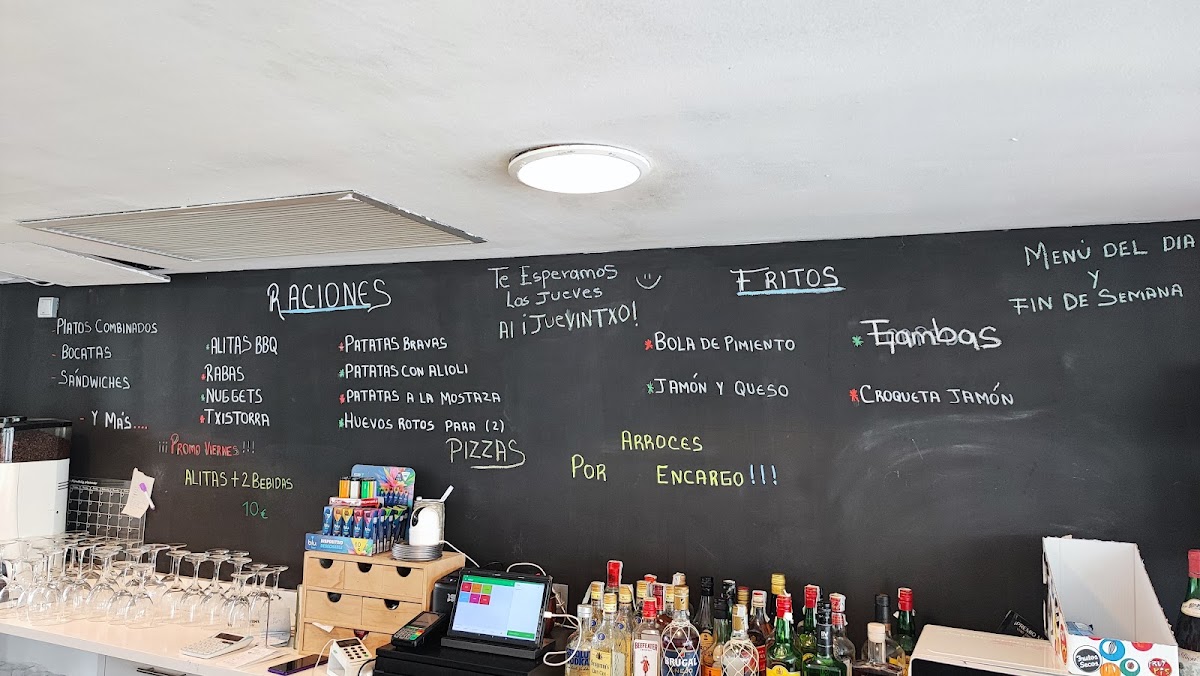 RACIONES
- PLATOS COMBINADOS
- BOCATAS
- SÁNDWICHES
- Y MÁS....
*ALITAS BBQ
*RABAS
*NUGGETS
*TXISTORRA
*PATATAS BRAVAS
*PATATAS CON ALIOLI
*PATATAS A LA MOSTAZA
*HUEVOS ROTOS PARA (2)
PIZZAS
¡¡¡ PROMO VIERNES !!!
ALITAS + 2 BEBIDAS
10€
Te Esperamos
Los Jueves
Al ¡JUEVINTXO!
FRITOS
*BOLA DE PIMIENTO
*JAMÓN Y QUESO
* Gambas
*CROQUETA JAMÓN
ARROCES
POR ENCARGO!!!
MENÚ DEL DIA
Y
FIN DE SEMANA
blu
BEEFEATER
BRUGAL
AÑEJO
Frutos
Secos